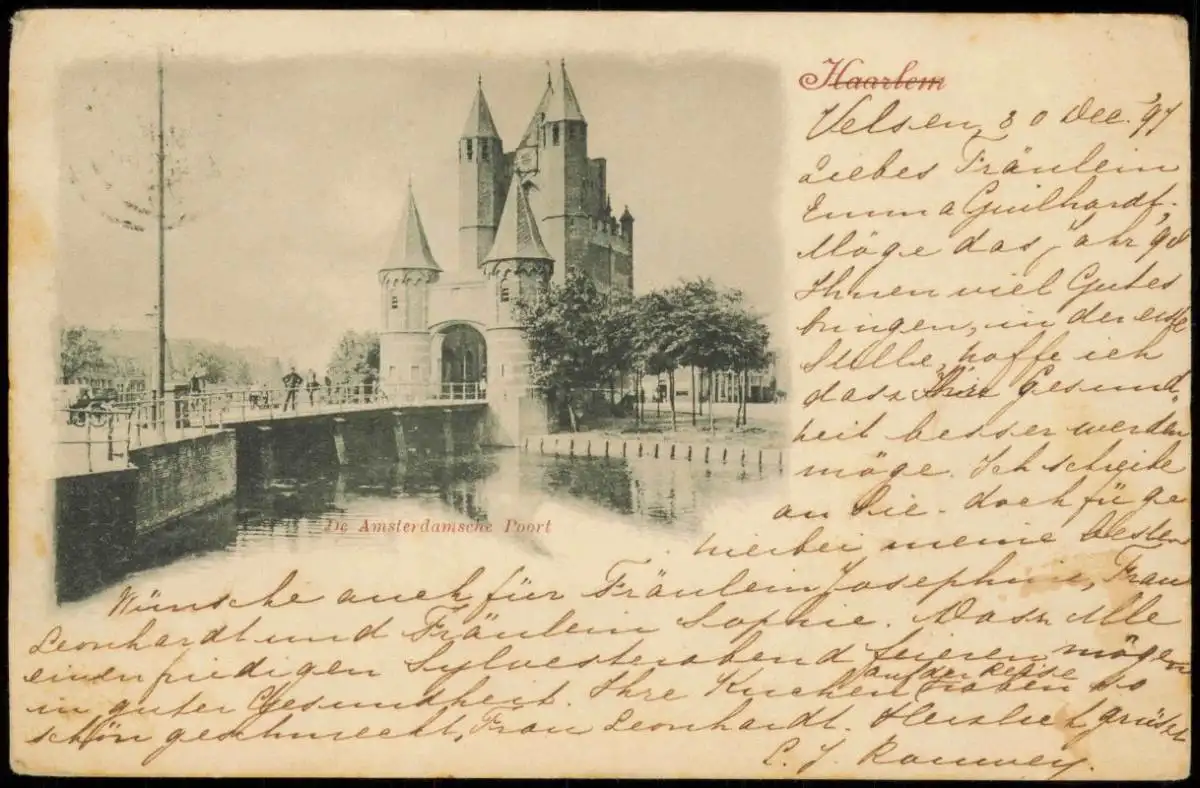 Haarlem
Velsen, 30 Dec. '97
Liebes Fräulein
Emma Guilhardt.
Möge das Jahr '98
Ihnen viel Gutes
bringen, in der erste
Stelle, hoffe ich
dass Ihre Gesund
heit besser werden
möge. Ich schreibe
an Sie. doch füge
hierbei meine besten
De Amsterdamsche Poort
Wünsche auch für Fräulein Josephine, Frau
Leonhardt und Fräulein Sophie. Dass Alle
einen friedigen Sylvesterabend feieren mögen
in guter Gesundheit. Ihre Kuchen haben auf der Reise so
schön geschmeckt, Frau Leonhardt. Herzlich grüsst